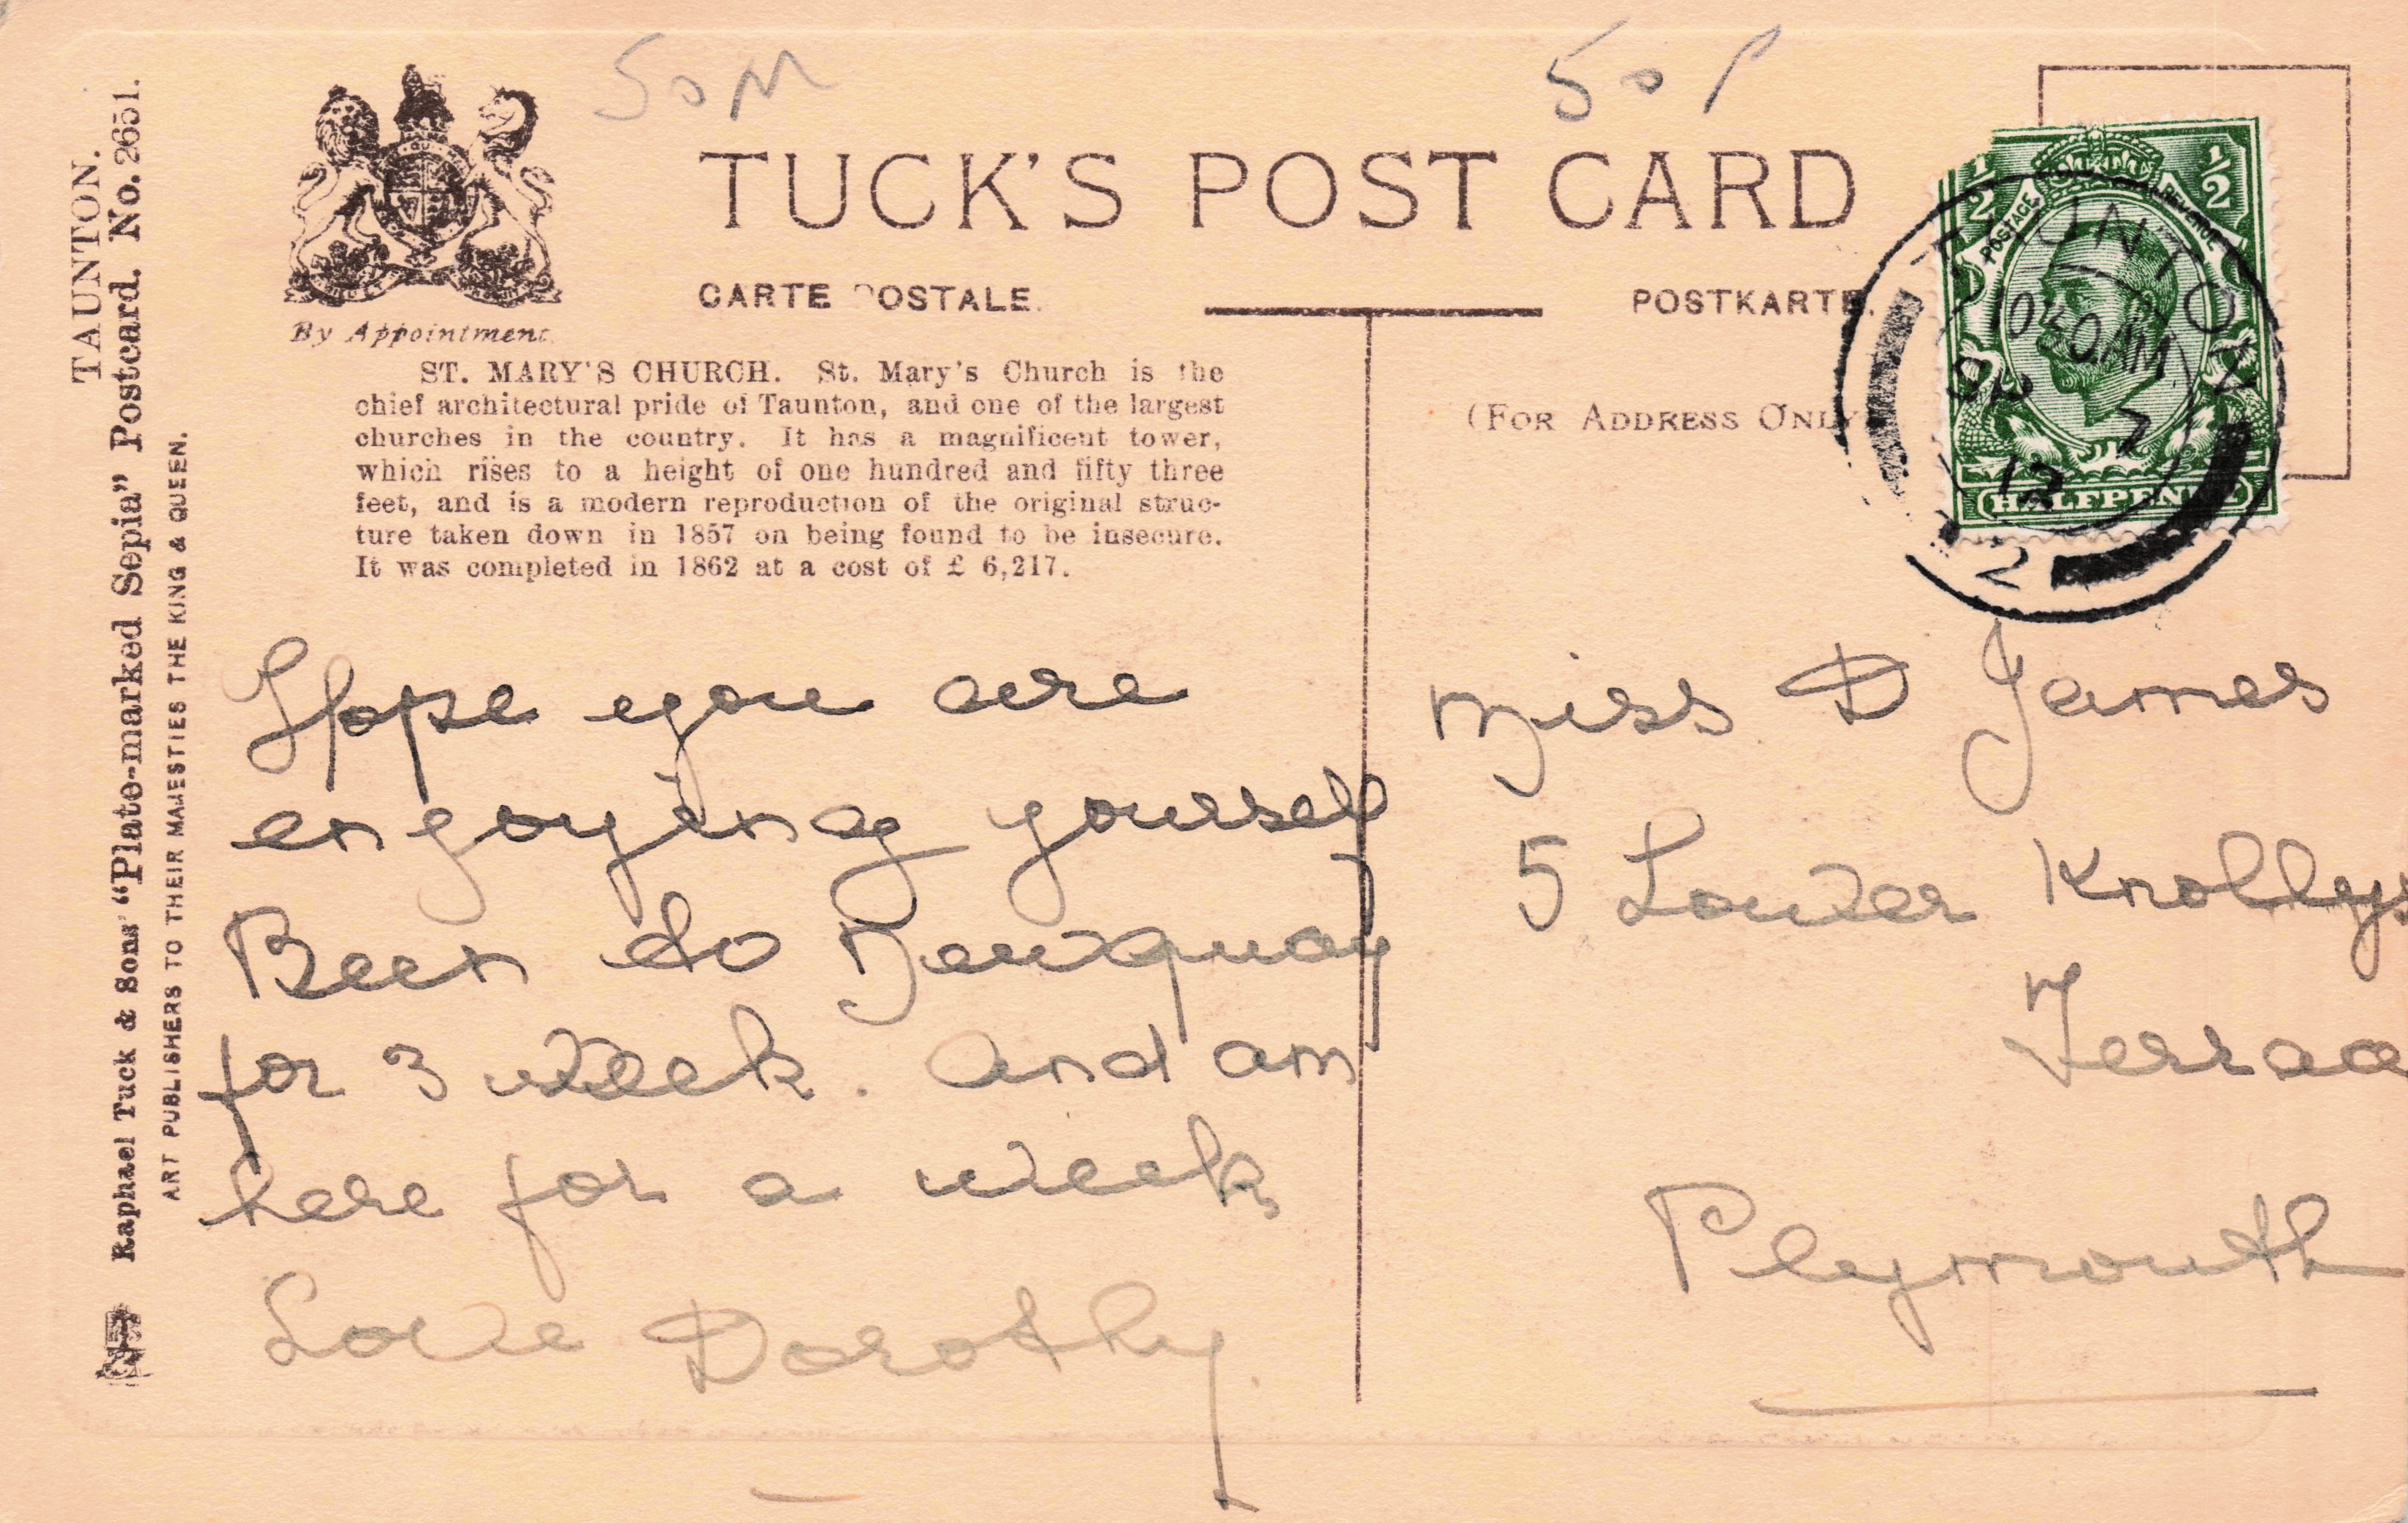 SOM
50p
TUCK'S POST CARD
CARTE POSTALE.
POSTKARTE.
By Appointment.
TAUNTON.
Raphael Tuck & Sons' "Plate-marked Sepia" Postcard. No. 2651.
ART PUBLISHERS TO THEIR MAJESTIES THE KING & QUEEN.
ST. MARY'S CHURCH. St. Mary's Church is the
chief architectural pride of Taunton, and one of the largest
churches in the country. It has a magnificent tower,
which rises to a height of one hundred and fifty three
feet, and is a modern reproduction of the original struc-
ture taken down in 1857 on being found to be insecure.
It was completed in 1862 at a cost of £ 6,217.
(FOR ADDRESS ONLY
1/2
1/2
POSTAGE
REVENUE
HALFPENNY
TAUNTON
10 30 AM
SP 7
12
2
Hope you are
engoying yourself
Been to Newquay
for 3 week. And am
here for a week
Love Dorothy.
Miss D James
5 Lower Knollys
Terrace
Plymouth